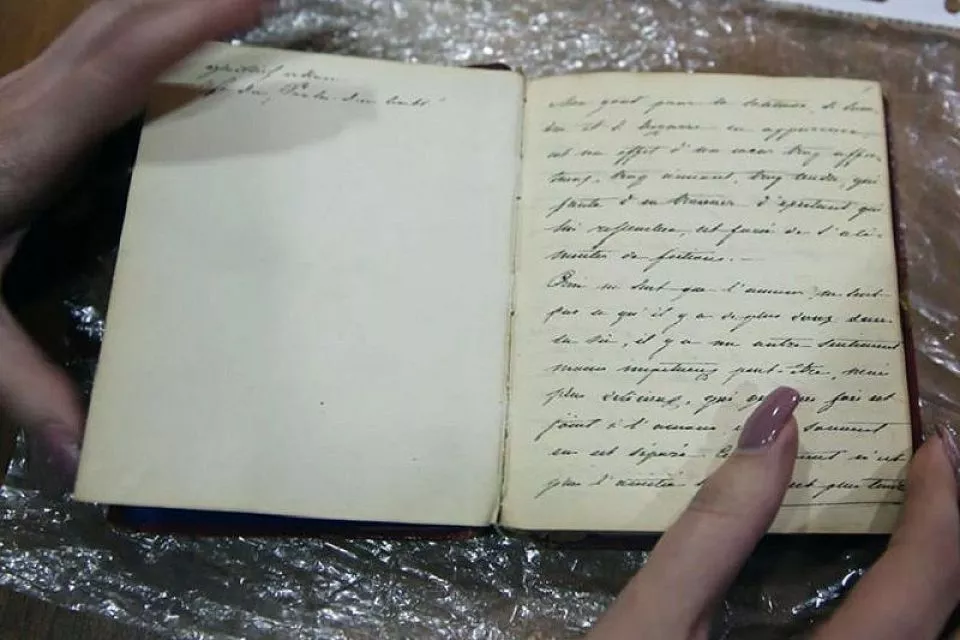 du
Mon gout pour la solitude, si som
bre et si bizarre en apparence,
est un effet d'un cœur trop affec-
tueux, trop aimant, trop tendre, qui
faute d'en trouver d'existant qui
lui ressemblent, est forcé de s'ali-
menter de fictions. —
Qui ne sent que l'amour, ne sent
pas ce qu'il y a de plus doux dans
la vie, il y a un autre sentiment
moins impetueux peut-être, mais
plus delicieux, qui fois est
joint à l'amour souvent
en est séparé n'est
pas l'amitié est plus tendre